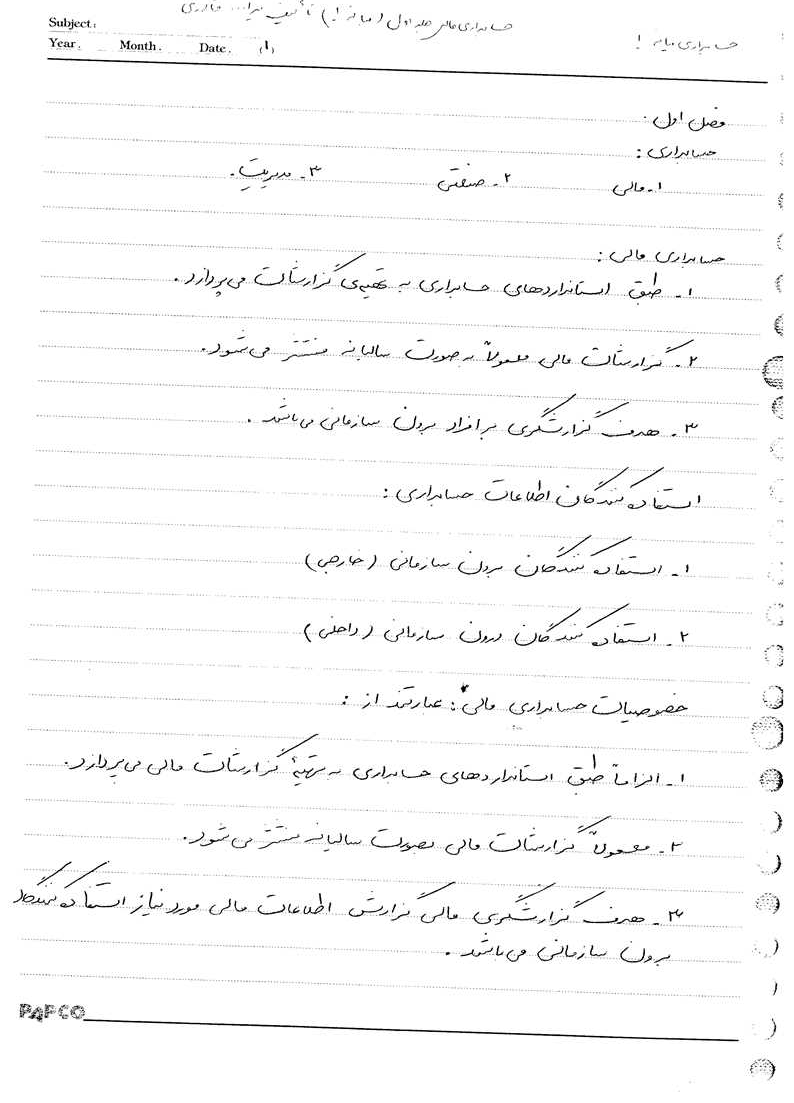 حسابداری مالی جلد اول (میانه ۱) تألیف
حسابداری میانه ۱
Subject:
Year. Month. Date. (۱)
فصل اول:
حسابداری:
۱- مالی ۲- صنعتی ۳- مدیریت.
حسابداری مالی:
۱- طبق استانداردهای حسابداری به تهیه‌ی گزارشات می‌پردازد.
۲- گزارشات مالی معمولاً به صورت سالیانه منتشر می‌شود.
۳- هدف گزارشگری بر افراد برون سازمانی می‌باشد.
استفاده کنندگان اطلاعات حسابداری:
۱- استفاده کنندگان برون سازمانی (خارجی)
۲- استفاده کنندگان درون سازمانی (داخلی)
خصوصیات حسابداری مالی: عبارتند از:
۱- الزاماً طبق استانداردهای حسابداری به تهیهٔ گزارشات مالی می‌پردازد.
۲- معمولاً گزارشات مالی بصورت سالیانه منتشر می‌شود.
۳- هدف گزارشگری مالی گزارش اطلاعات مالی مورد نیاز استفاده کنندگان
برون سازمانی می‌باشد.
PAPCO